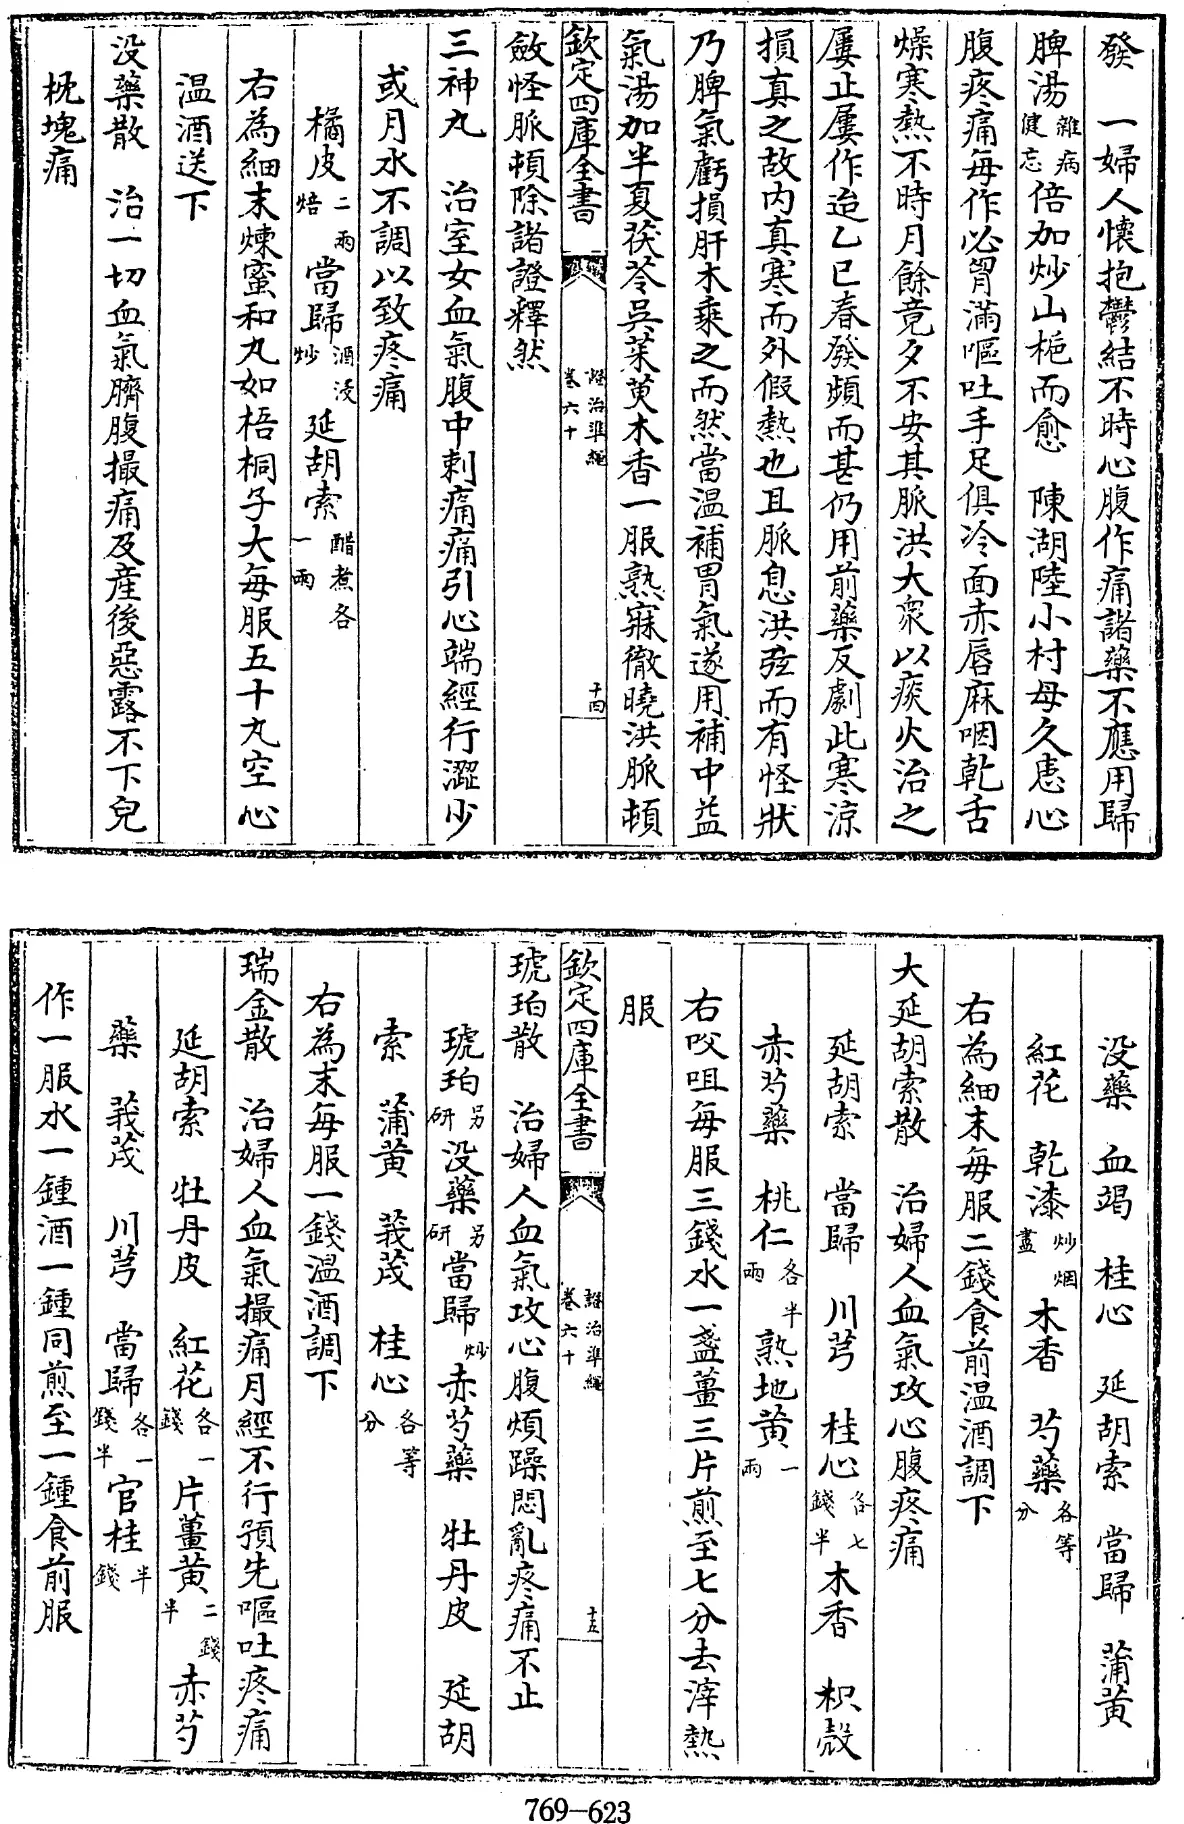 發　一婦人懷抱鬱結不時心腹作痛諸藥不應用歸
脾湯雜病健忘倍加炒山梔而愈　陳湖陸小村母久患心
腹疼痛每作必胷滿嘔吐手足俱冷面赤唇麻咽乾舌
燥寒熱不時月餘竟夕不安其脈洪大衆以痰火治之
屢止屢作迨乙巳春發頻而甚仍用前藥反劇此寒涼
損真之故內真寒而外假熱也且脈息洪弦而有怪狀
乃脾氣虧損肝木乘之而然當温補胃氣遂用補中益
氣湯加半夏茯苓吳茱萸木香一服熟寐徹曉洪脈頓
欽定四庫全書　證治準繩卷六十　十四
斂怪脈頓除諸證釋然
三神丸　治室女血氣腹中刺痛痛引心端經行澀少
或月水不調以致疼痛
橘皮二兩焙　當歸酒浸炒　延胡索醋煮各一兩
右為細末煉蜜和丸如梧桐子大每服五十丸空心
温酒送下
没藥散　治一切血氣臍腹撮痛及產後惡露不下兒
枕塊痛
没藥　血竭　桂心　延胡索　當歸　蒲黃
紅花　乾漆炒烟盡　木香　芍藥各等分
右為細末每服二錢食前温酒調下
大延胡索散　治婦人血氣攻心腹疼痛
延胡索　當歸　川芎　桂心各七錢半　木香　枳殼
赤芍藥　桃仁各半兩　熟地黃一兩
右㕮咀每服三錢水一盞薑三片煎至七分去滓熱
服
欽定四庫全書　證治準繩卷六十　十五
琥珀散　治婦人血氣攻心腹煩躁悶亂疼痛不止
琥珀另研　没藥另研　當歸炒　赤芍藥　牡丹皮　延胡
索　蒲黃　莪茂　桂心各等分
右為末每服一錢温酒調下
瑞金散　治婦人血氣撮痛月經不行預先嘔吐疼痛
延胡索　牡丹皮　紅花各一錢　片薑黃二錢半　赤芍
藥　莪茂　川芎　當歸各一錢半　官桂半錢
作一服水一鍾酒一鍾同煎至一鍾食前服
769-623